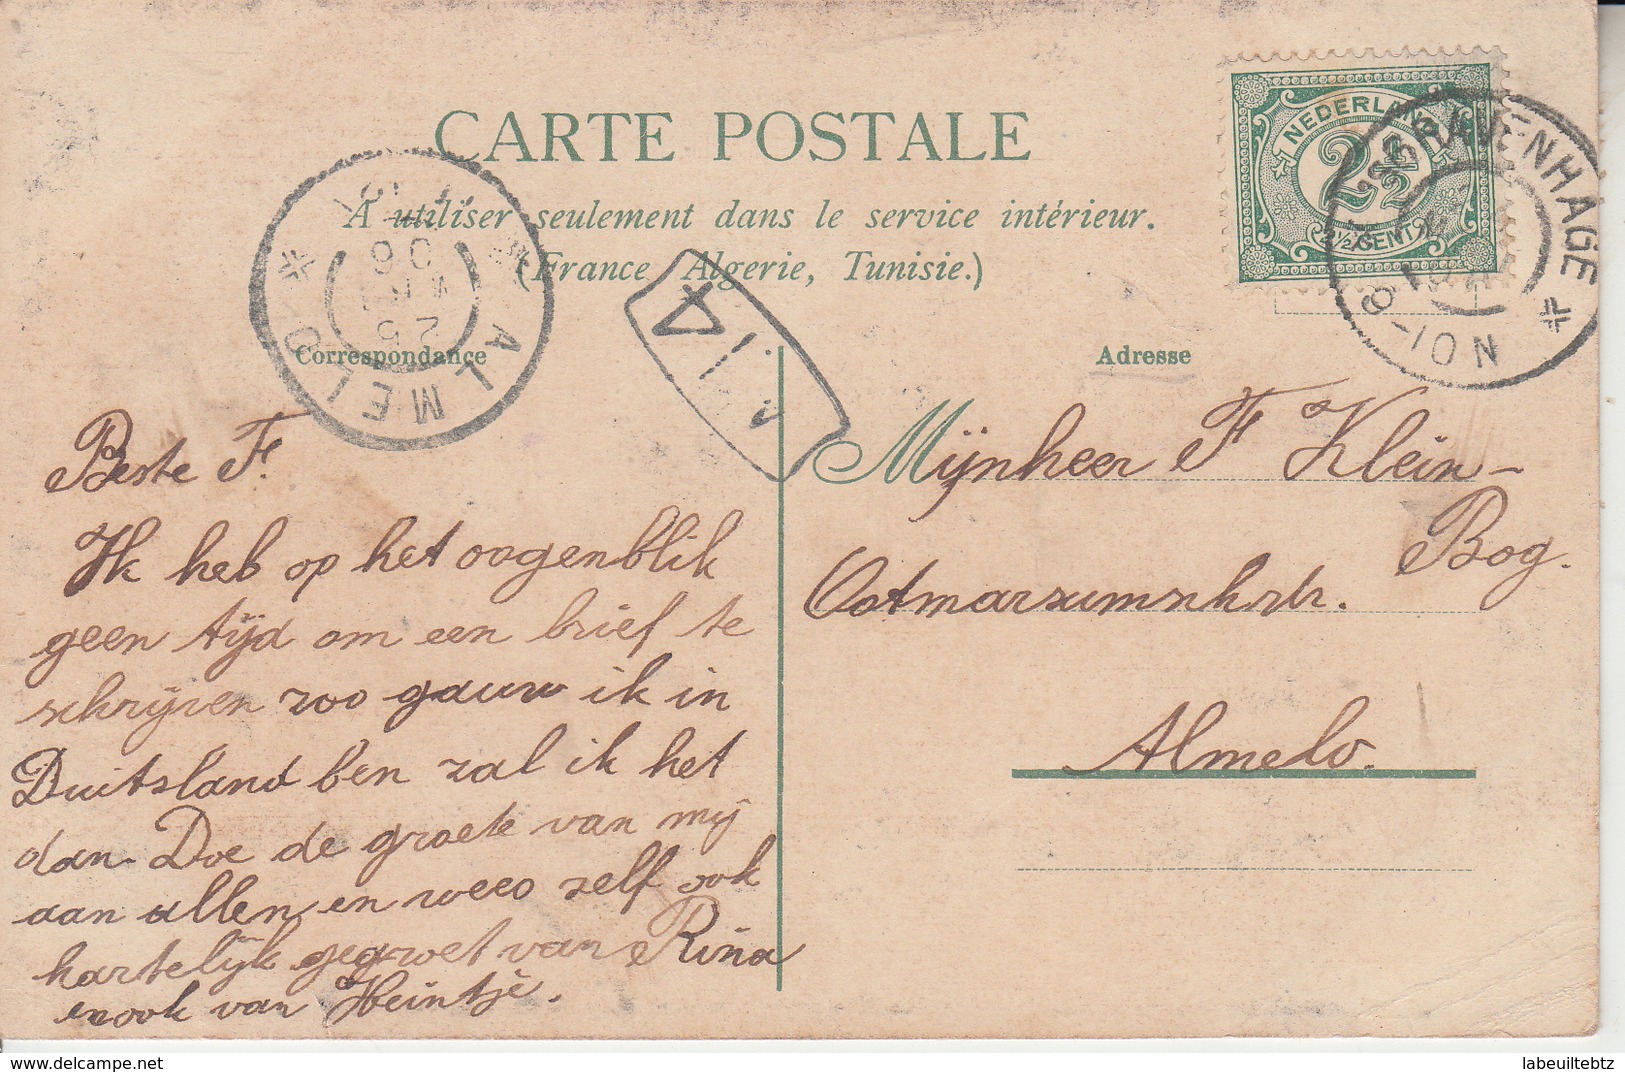 CARTE POSTALE
A utiliser seulement dans le service intérieur.
(France, Algerie, Tunisie.)
Correspondance
Adresse
NEDERLAND
2 1/2
2 1/2 CENT
'S GRAVENHAGE
8-10 N
ALMELO
25
06
4
Beste F.
Ik heb op het oogenblik
geen tijd om een brief te
schrijven zoo gauw ik in
Duitsland ben zal ik het
dan. Doe de groete van mij
aan allen en wees zelf ook
hartelijk gegroet van Rina
en ook van Heintje.
Mijnheer F Klein-
Bog.
Ootmarsumschstr.
Almelo.
www.delcampe.net
labeuiltebtz